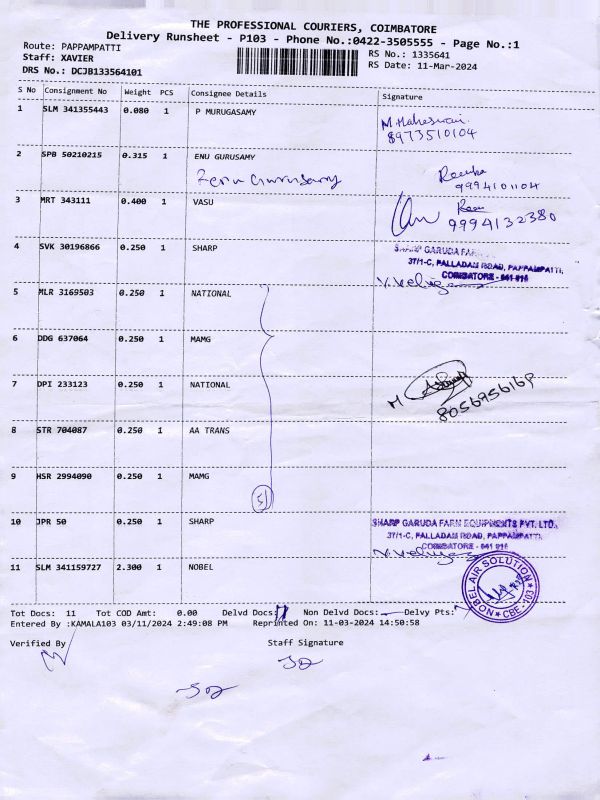 THE PROFESSIONAL COURIERS, COIMBATORE
Delivery Runsheet - P103 - Phone No.:0422-3505555 - Page No.:1
Route: PAPPAMPATTI
RS No.: 1335641
Staff: XAVIER
RS Date: 11-Mar-2024
DRS No.: DCJB133564101
S No Consignment No Weight PCS Consignee Details Signature
1 SLM 341355443 0.080 1 P MURUGASAMY
M. Maheswari
8973510104
2 SPB 50210215 0.315 1 ENU GURUSAMY
Renu Gurusamy
Renuka
9994101104
3 MRT 343111 0.400 1 VASU
9994132380
4 SVK 30196866 0.250 1 SHARP
SHARP GARUDA FARM
37/1-C, PALLADAM ROAD, PAPPAMPATTI,
COIMBATORE - 641 016
5 MLR 3169503 0.250 1 NATIONAL
6 DDG 637064 0.250 1 MAMG
7 DPI 233123 0.250 1 NATIONAL
M
8056956169
8 STR 704087 0.250 1 AA TRANS
9 HSR 2994090 0.250 1 MAMG
5
10 JPR 50 0.250 1 SHARP
SHARP GARUDA FARM EQUIPMENTS PVT. LTD.,
37/1-C, PALLADAM ROAD, PAPPAMPATTI,
COIMBATORE - 641 016
11 SLM 341159727 2.300 1 NOBEL
NOBEL AIR SOLUTION
CBE - 103
Tot Docs: 11 Tot COD Amt: 0.00 Delvd Docs: 11 Non Delvd Docs: Delvy Pts:
Entered By :KAMALA103 03/11/2024 2:49:08 PM Reprinted On: 11-03-2024 14:50:58
Verified By Staff Signature